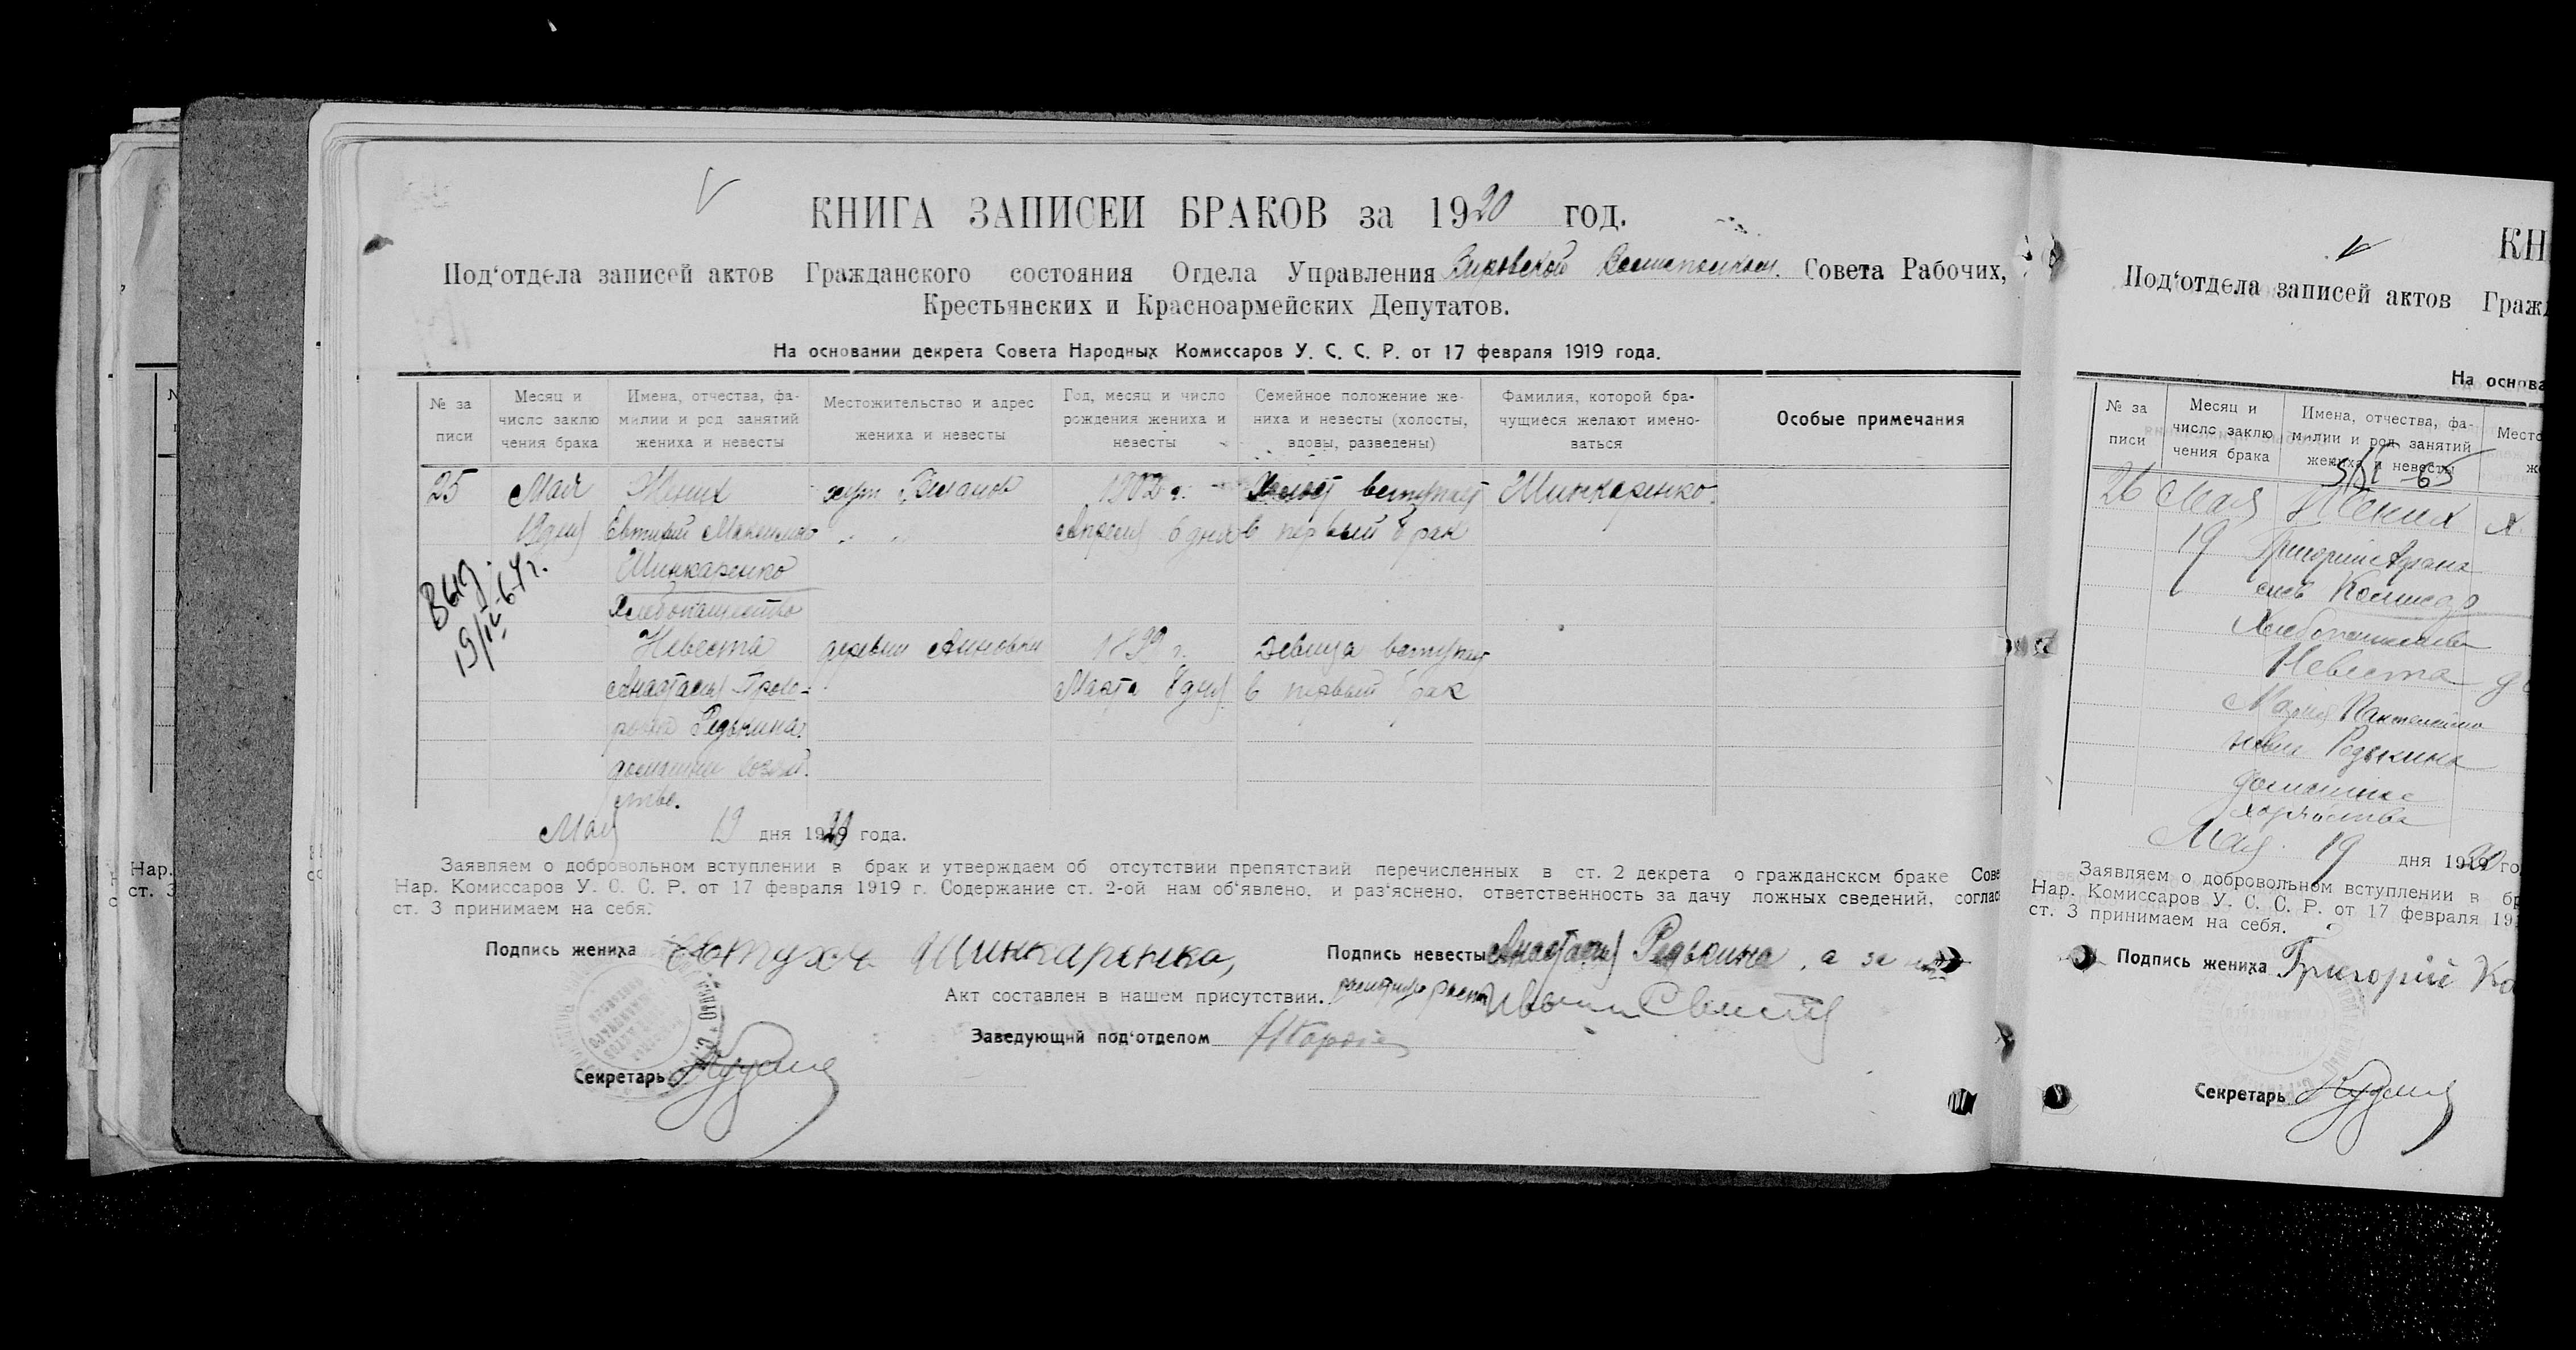 КНИГА ЗАПИСЕЙ БРАКОВ за 1920 год.
Под'отдела записей актов Гражданского состояния Отдела Управления Совета Рабочих,
Крестьянских и Красноармейских Депутатов.
На основании декрета Совета Народных Комиссаров У. С. С. Р. от 17 февраля 1919 года.
№ за писи
Месяц и число заклю чения брака
Имена, отчества, фа- милии и род занятий жениха и невесты
Местожительство и адрес жениха и невесты
Год, месяц и число рождения жениха и невесты
Семейное положение же- ниха и невесты (холосты, вдовы, разведены)
Фамилия, которой бра- чущиеся желают имено- ваться
Особые примечания
25 Мая Жених хут 1902 г. Холост вступает Шинкаренко.
19 дня Евтихий " " Апреля 6 дня в первый брак
Шинкаренко
Хлебопашество
Невеста деревни 1899 г. Девица вступает
Анастасия Прохо- Марта 8 дня в первый брак
Редькина.
домашнее хозяй-
ство.
Выд.
19/IV-64 г.
Мая 19 дня 1920 года.
Заявляем о добровольном вступлении в брак и утверждаем об отсутствии препятствий перечисленных в ст. 2 декрета о гражданском браке Сове
Нар. Комиссаров У. С. С. Р. от 17 февраля 1919 г. Содержание ст. 2-ой нам об'явлено, и раз'яснено, ответственность за дачу ложных сведений, соглас
ст. 3 принимаем на себя.
Подпись жениха Шинкаренко, Подпись невесты Анастасия Редькина, а за
Акт составлен в нашем присутствии.
Заведующий под'отделом
Секретарь
КН
Под'отдела записей актов Граж
На основа
№ за писи
Месяц и число заклю чения брака
Имена, отчества, фа- милии и род занятий жениха и невесты
Место
26 Мая Жених
19 Григорий Афана
сиев
Хлебопашество
Невеста
Мария Пантелеймо
новна Редькина
домашнее
хозяйство
Мая 19 дня 1920 го
Заявляем о добровольном вступлении в бр
Нар. Комиссаров У. С. С. Р. от 17 февраля 191
ст. 3 принимаем на себя.
Подпись жениха Григорий Ко
Секретарь
Нар.
ст. 3